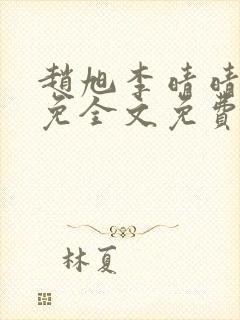 趙旭李晴晴
免全文免費
林夏